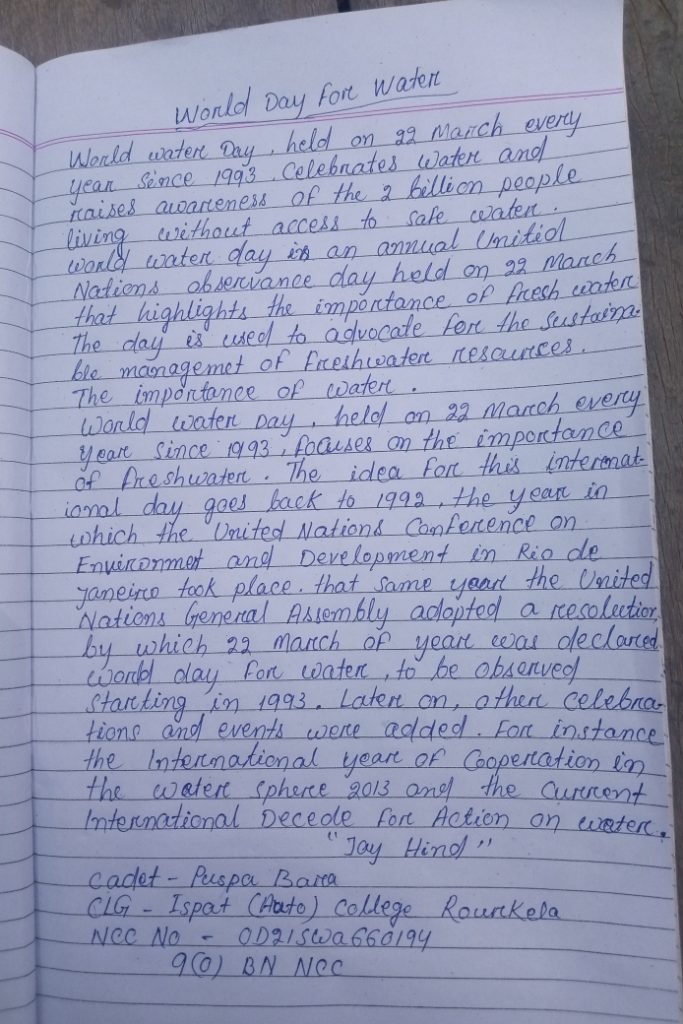 World Day For Water
World water Day, held on 22 March every
year since 1993. Celebrates Water and
raises awareness of the 2 billion people
living without access to safe water.
world water day is an annual Unitid
Nations observance day held on 22 March
that highlights the importance of fresh water
The day is used to advocate for the sustaina-
ble managemet of freshwater resources.
The importance of water.
World water Day, held on 22 March every
year since 1993, focuses on the importance
of freshwater. The idea for this internat-
ional day goes back to 1992, the year in
which the United Nations Conference on
Environmet and Development in Rio de
Janeiro took place. that same year the United
Nations General Assembly adopted a resolution
by which 22 march of year was declared
world day for water, to be observed
starting in 1993. Later on, other celebra-
tions and events were added. For instance
the International year of Cooperation in
the water sphere 2013 and the current
International Decede for Action on water.
"Jay Hind"
Cadet - Puspa Bara
CLG - Ispat (Auto) College Rourkela
NCC NO - OD21SWA660194
9(O) BN NCC